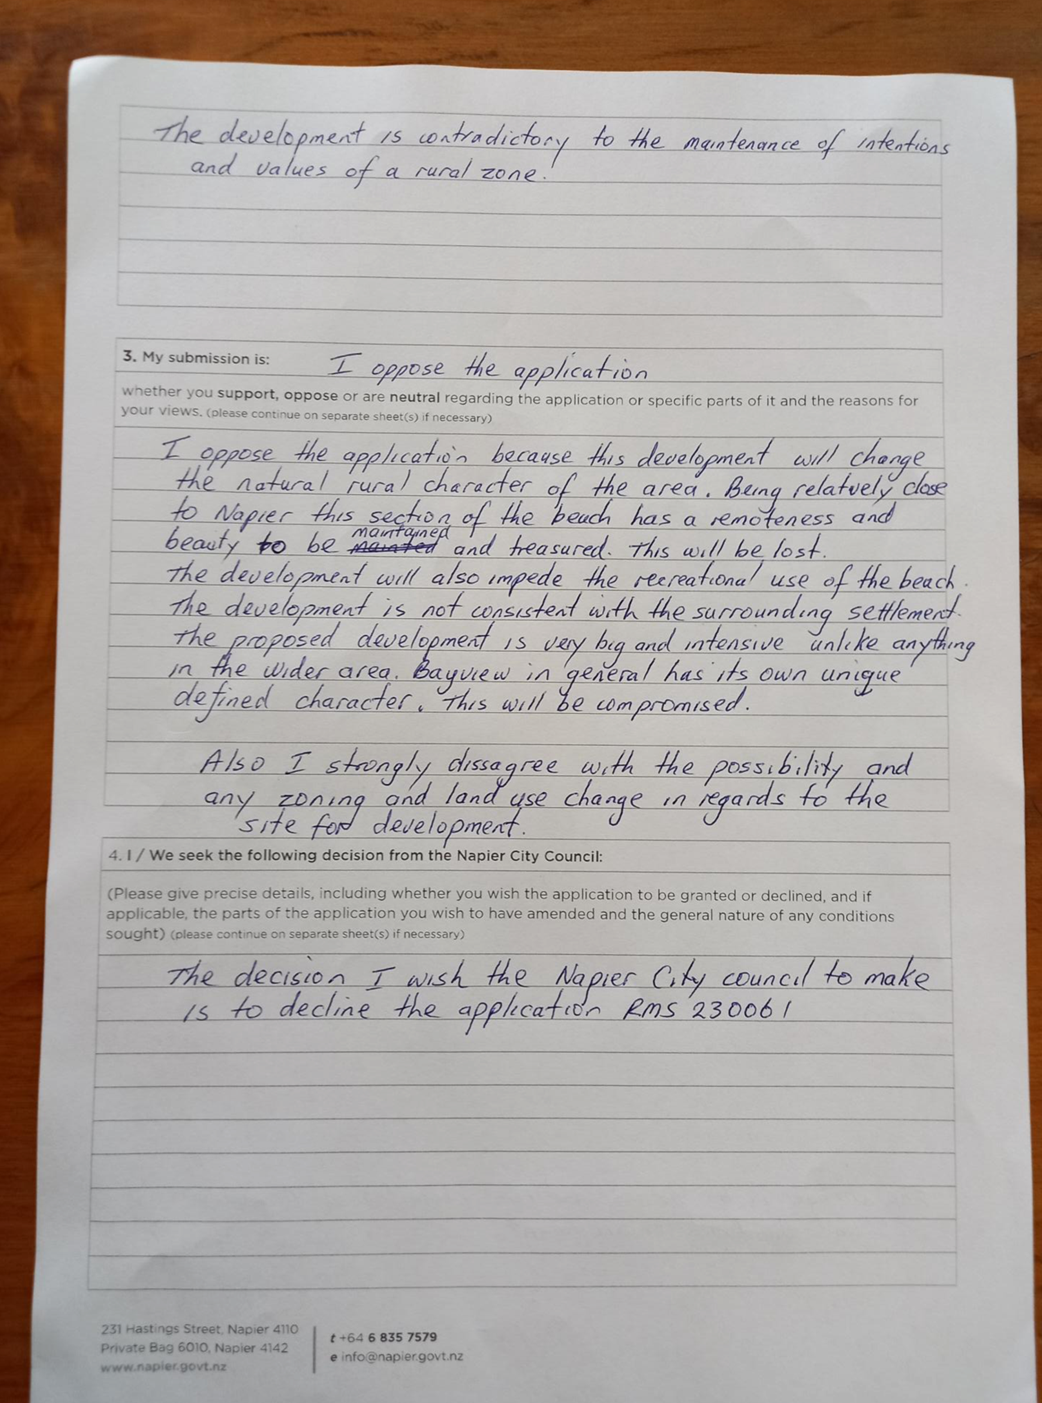 The development is contradictory to the maintenance of intentions
and values of a rural zone.
3. My submission is: I oppose the application
whether you support, oppose or are neutral regarding the application or specific parts of it and the reasons for
your views. (please continue on separate sheet(s) if necessary)
I oppose the application because this development will change
the natural rural character of the area. Being relatvely close
to Napier this section of the beach has a remoteness and
maintained
beauty to be mainted and treasured. This will be lost.
The development will also impede the recreational use of the beach.
The development is not consistent with the surrounding settlement.
The proposed development is very big and intensive unlike anything
in the wider area. Bayview in general has its own unique
defined character. This will be compromised.
Also I strongly dissagree with the possibility and
any zoning and land use change in regards to the
site for development.
4. I / We seek the following decision from the Napier City Council:
(Please give precise details, including whether you wish the application to be granted or declined, and if
applicable, the parts of the application you wish to have amended and the general nature of any conditions
sought) (please continue on separate sheet(s) if necessary)
The decision I wish the Napier City council to make
is to decline the application RMS 230061
231 Hastings Street, Napier 4110
Private Bag 6010, Napier 4142
www.napier.govt.nz
t +64 6 835 7579
e info@napier.govt.nz